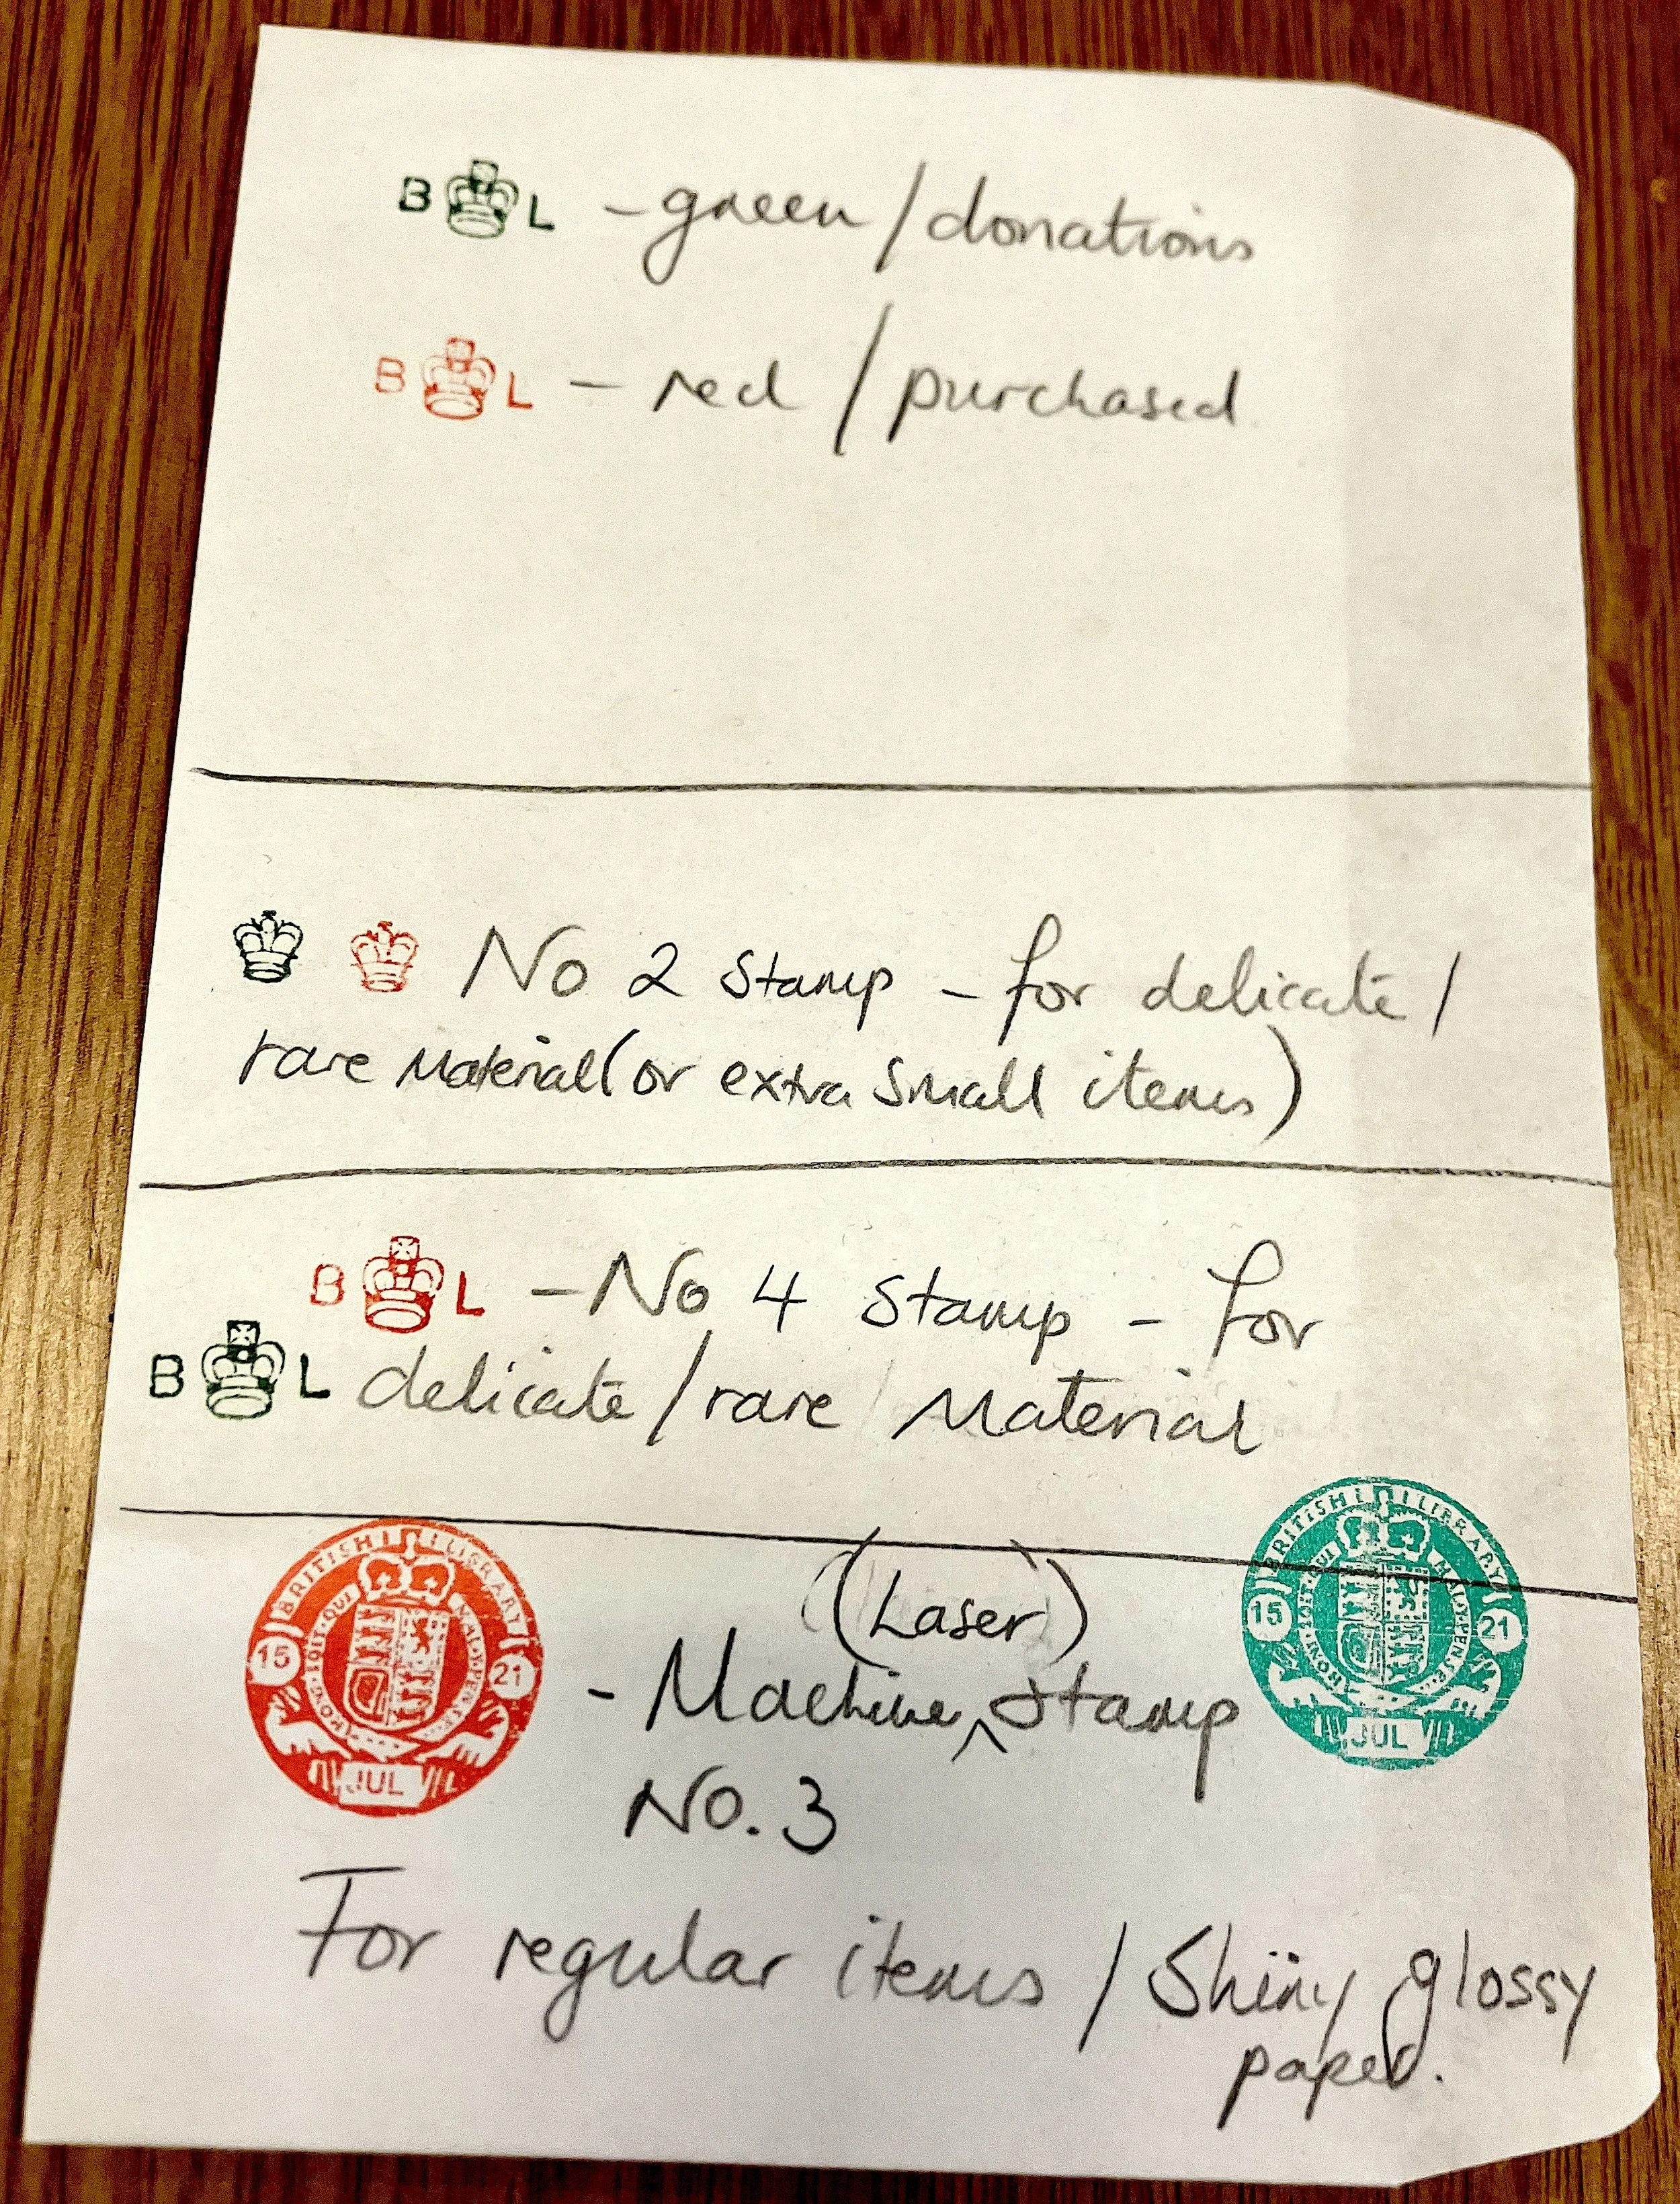 B L - green / donations
B L - red / purchased
No 2 Stamp - for delicate /
rare Material (or extra Small items)
B L - No 4 Stamp - for
B L delicate / rare Material
BRITISH LIBRARY
HONI·SOIT·QUI·MAL·Y·PENSE
15 21
JUL
(Laser)
- Machine ^ Stamp
No. 3
BRITISH LIBRARY
HONI·SOIT·QUI·MAL·Y·PENSE
15 21
JUL
For regular items / Shiny glossy
paper.